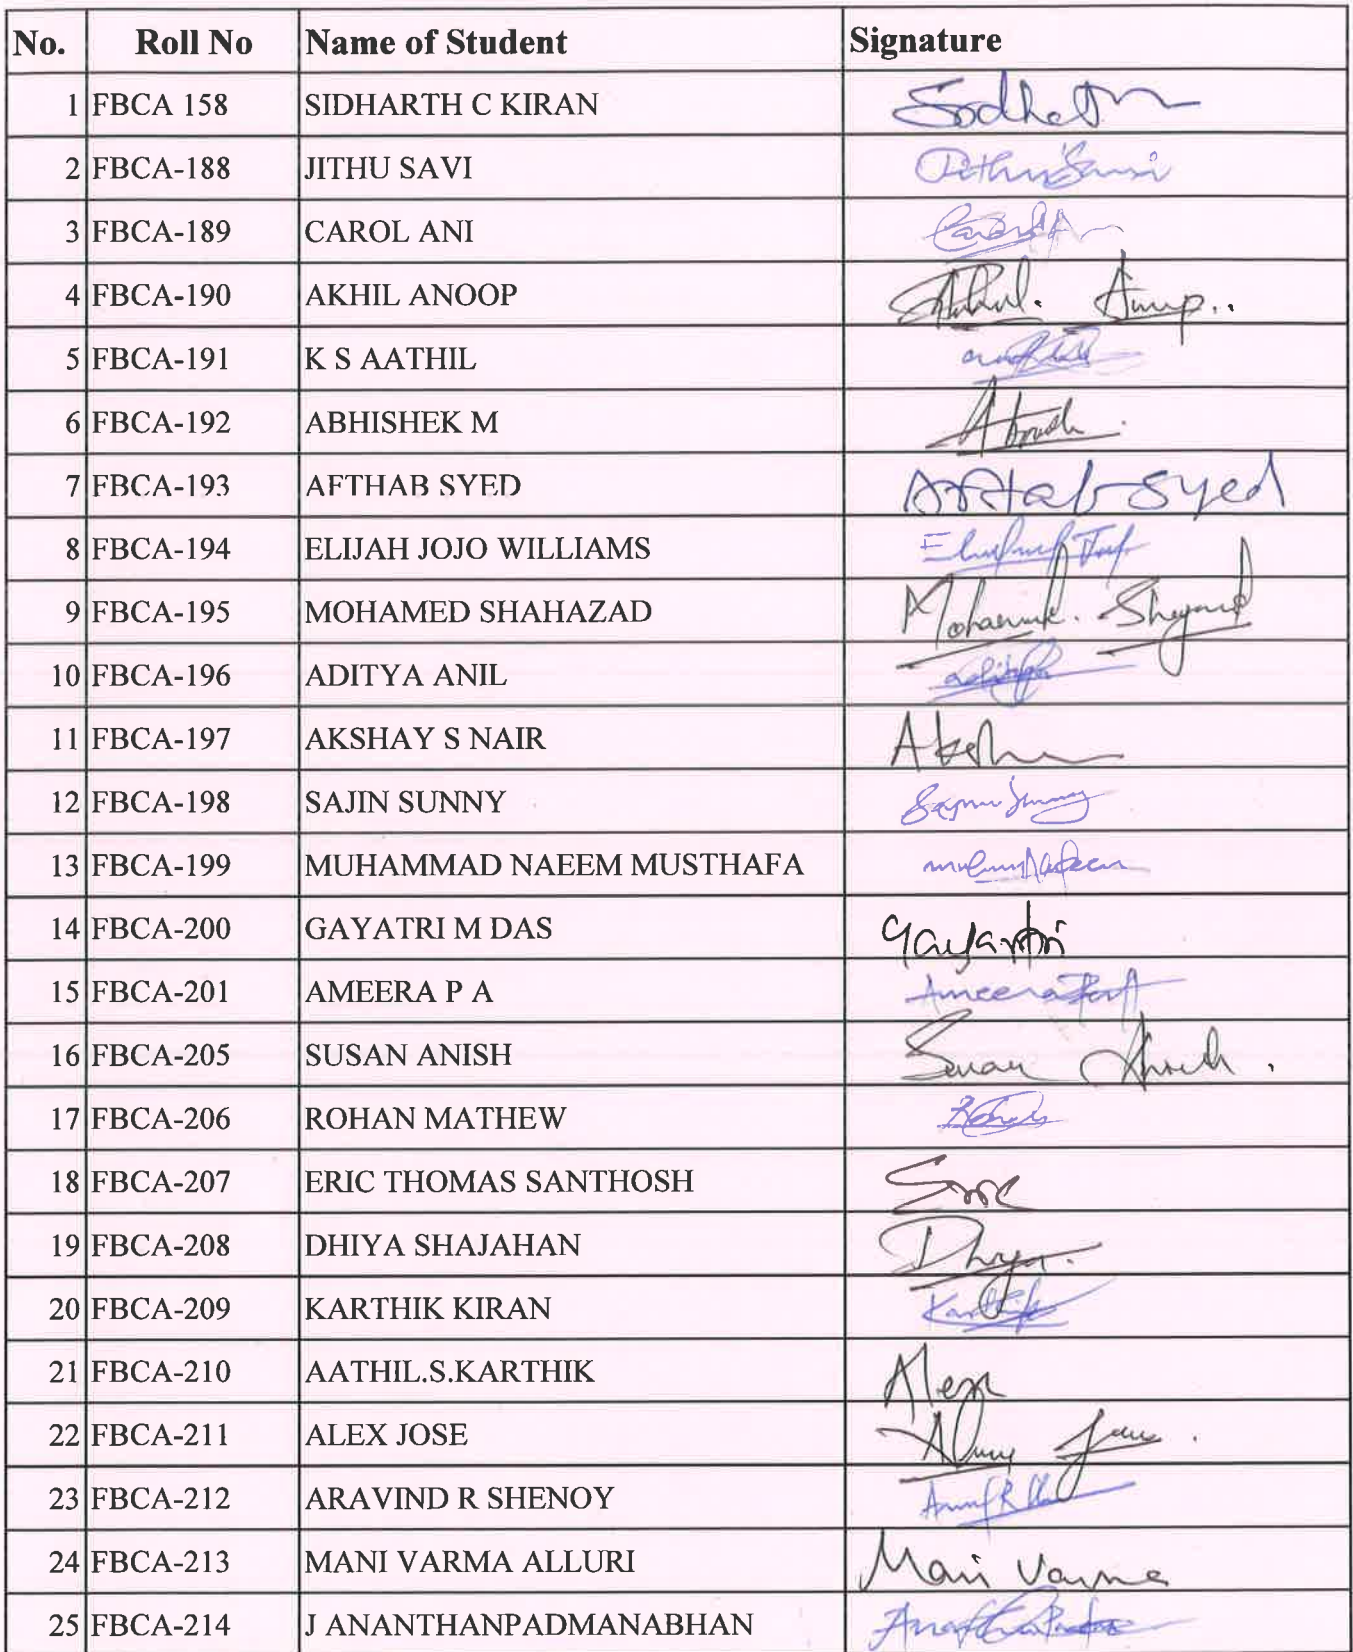 No. Roll No Name of Student Signature
1 FBCA 158 SIDHARTH C KIRAN
2 FBCA-188 JITHU SAVI
3 FBCA-189 CAROL ANI
4 FBCA-190 AKHIL ANOOP
5 FBCA-191 K S AATHIL
6 FBCA-192 ABHISHEK M
7 FBCA-193 AFTHAB SYED Aftab Syed
8 FBCA-194 ELIJAH JOJO WILLIAMS
9 FBCA-195 MOHAMED SHAHAZAD
10 FBCA-196 ADITYA ANIL
11 FBCA-197 AKSHAY S NAIR
12 FBCA-198 SAJIN SUNNY
13 FBCA-199 MUHAMMAD NAEEM MUSTHAFA
14 FBCA-200 GAYATRI M DAS
15 FBCA-201 AMEERA P A Ameera
16 FBCA-205 SUSAN ANISH
17 FBCA-206 ROHAN MATHEW
18 FBCA-207 ERIC THOMAS SANTHOSH
19 FBCA-208 DHIYA SHAJAHAN Dhiya
20 FBCA-209 KARTHIK KIRAN Karthik
21 FBCA-210 AATHIL.S.KARTHIK
22 FBCA-211 ALEX JOSE
23 FBCA-212 ARAVIND R SHENOY
24 FBCA-213 MANI VARMA ALLURI Mani Varma
25 FBCA-214 J ANANTHANPADMANABHAN